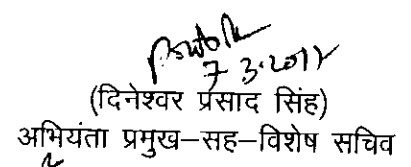 7.3.2011
(दिनेश्वर प्रसाद सिंह)
अभियंता प्रमुख–सह–विशेष सचिव